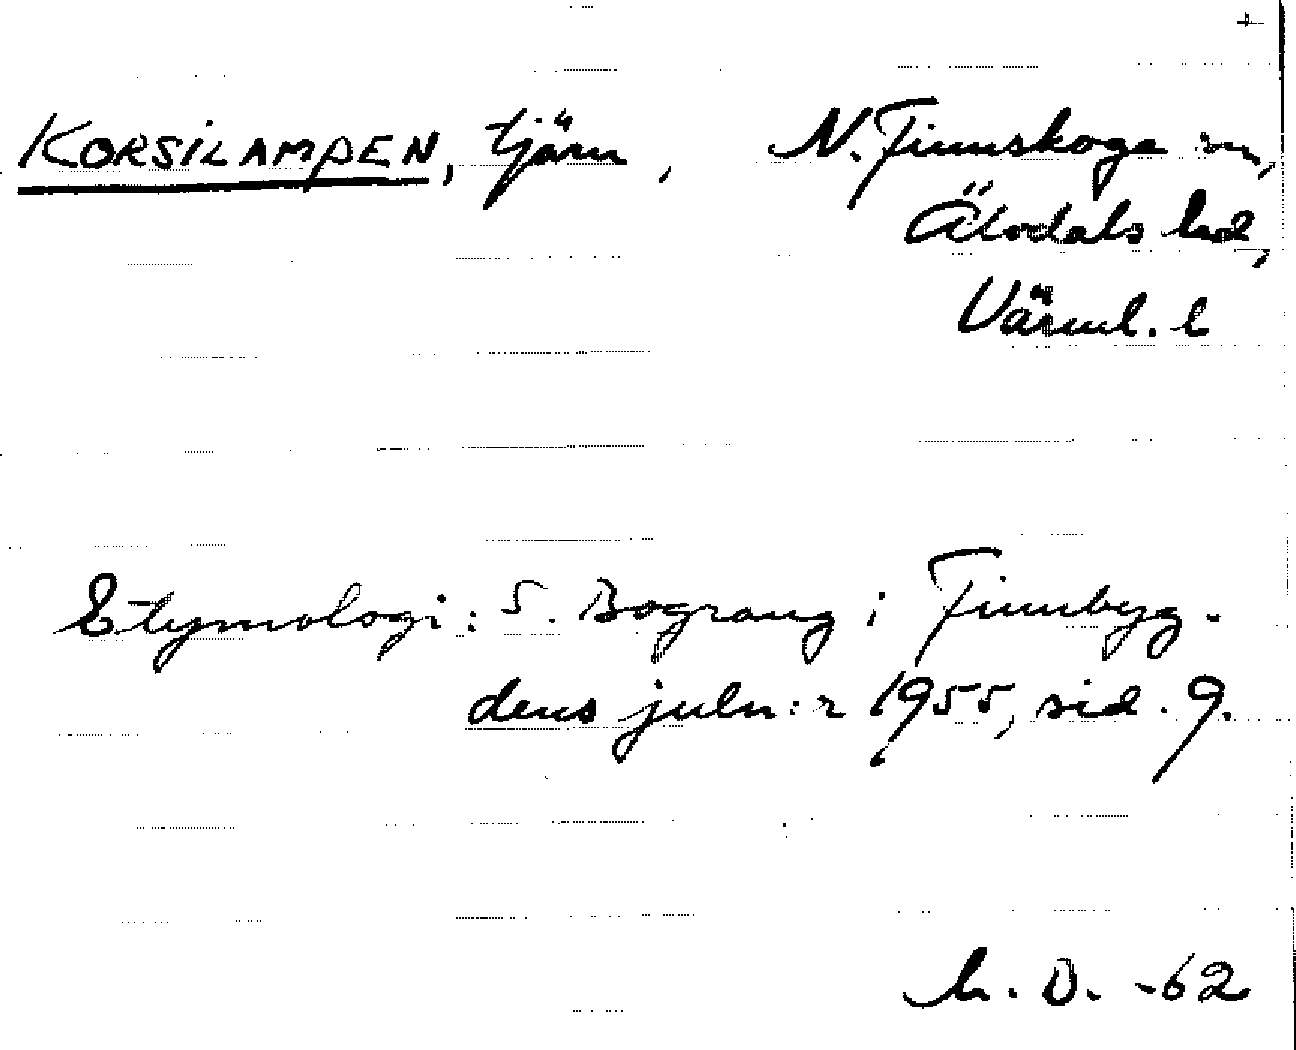 KORSILAMPEN, tjärn, N. Finnskoga sn,
Älvdals hd,
Värml. l
Etymologi: S. Bograng i Finnbyg-
dens juln:r 1955, sid. 9.
D. -62